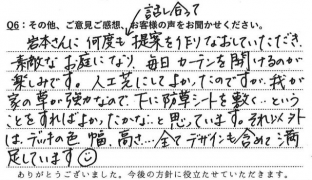 Q6：その他、ご意見ご感想、お客様の声をお聞かせください。
話し合って
岩本さんに何度も提案を作りなおしていただき、
素敵なお庭になり、毎日カーテンを開けるのが
楽しみです。人工芝にしてよかったのですが、我が
家の草が強力なので、下に防草シートを敷く…という
ことをすればよかったかな…と思っています。それ以外
は、デッキの色、幅、高さ…全てデザインも含めて満
足しています☺
ありがとうございました。今後の方針に役立たせていただきます。